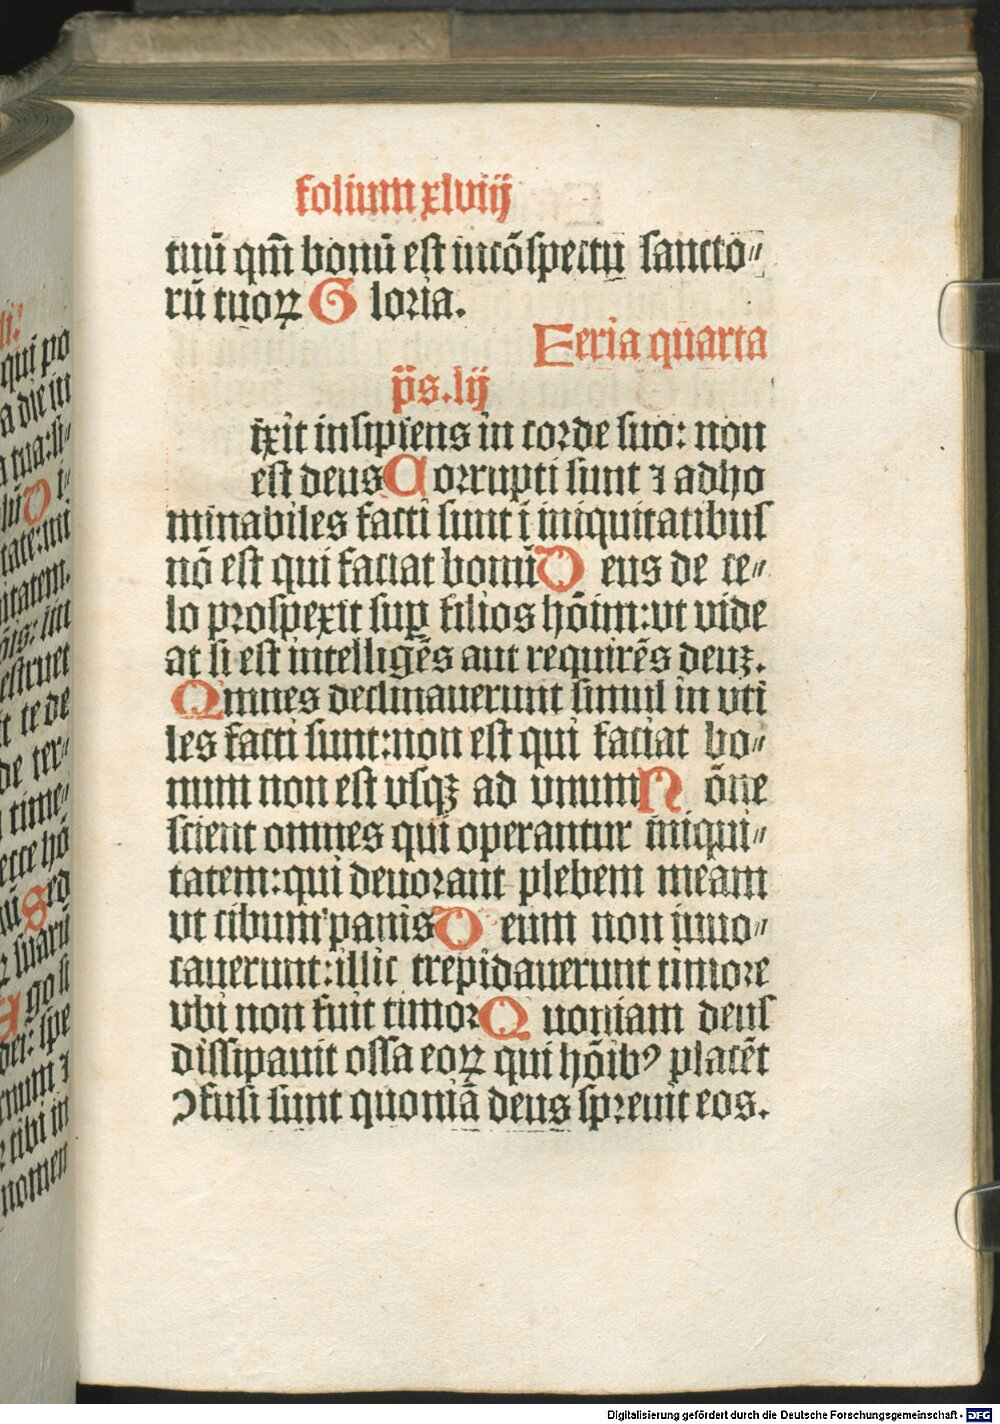 folium xlviij
tuū qm̄ bonū est incōspectu sancto⸗
rū tuoꝝ Gloria.
Feria quarta
p̄s. lij
ixit insipiens in corde suo: non
est deus Corrupti sunt ⁊ abho
minabiles facti sunt ī iniquitatibus
nō est qui faciat bonū Deus de ce⸗
lo prospexit suꝑ filios hōim: ut vide
at si est intelligēs aut requirēs deuꝫ.
Omnes declinauerunt simul in vti
les facti sunt: non est qui faciat bo⸗
num non est vsqꝫ ad vnum Nōne
scient omnes qui operantur iniqui⸗
tatem: qui deuorant plebem meam
ut cibum panis Deum non inuo⸗
cauerunt: illic trepidauerunt timore
vbi non fuit timor Quoniam deus
dissipauit ossa eoꝝ qui hōibꝰ placēt
ꝯfusi sunt quoniā deus spreuit eos.
qui po
a die in
tua: si⸗
Di⸗
tate: mi
itatem.
estruet
t te de
de ter⸗
time⸗
ecce hō
Sed
suarū
go si
dei: spe
rnum ⁊
tibi in
nomen
Digitalisierung gefördert durch die Deutsche Forschungsgemeinschaft - DFG